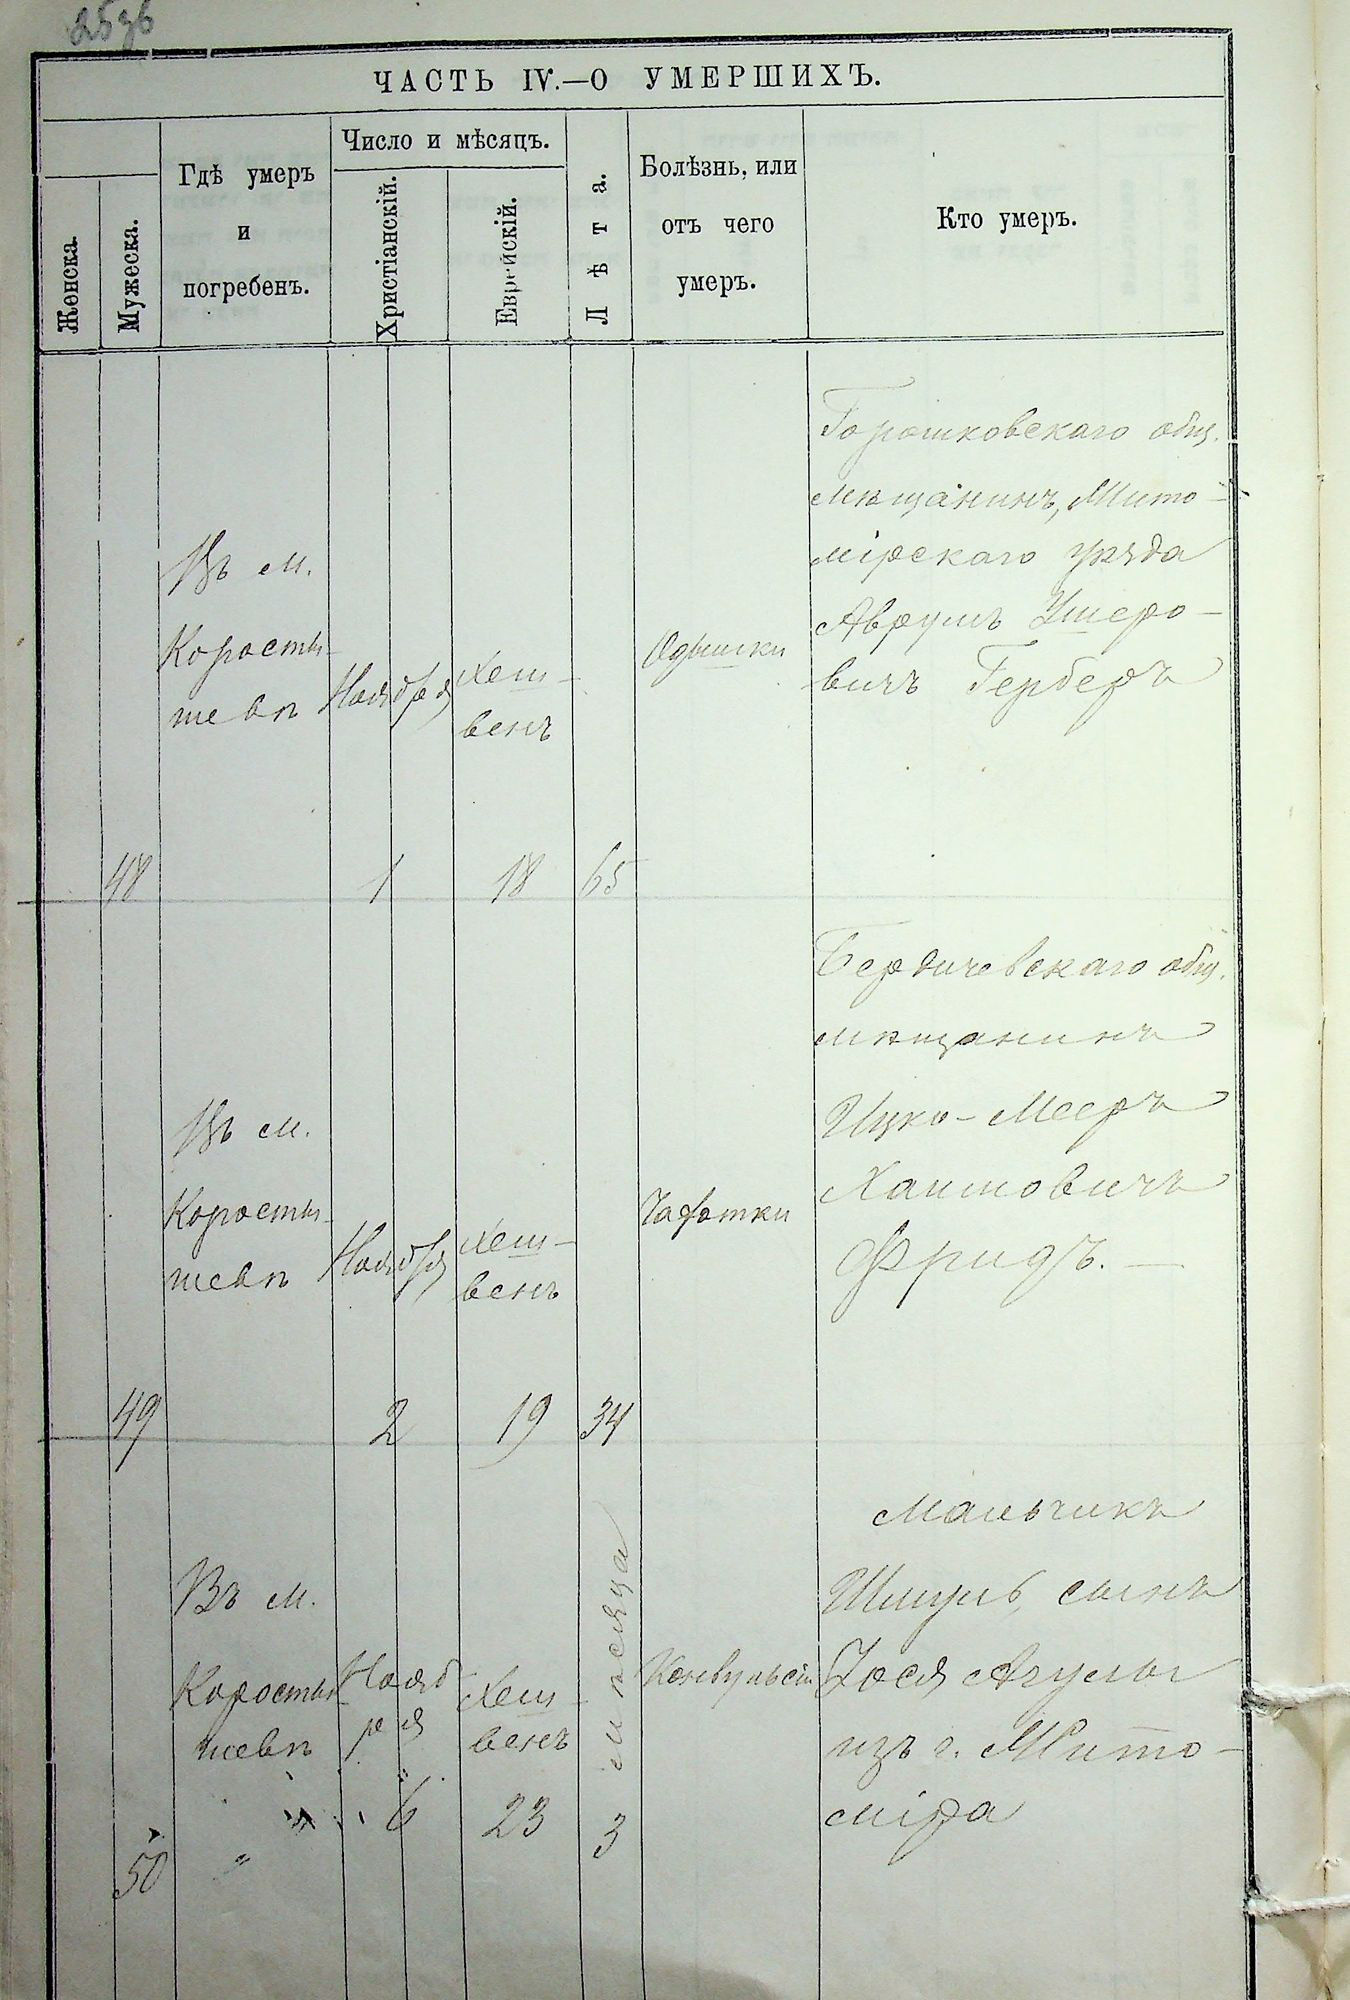 25зб
ЧАСТЬ IV.—О УМЕРШИХЪ.
Женска.
Мужеска.
Гдѣ умеръ
и
погребенъ.
Число и мѣсяцъ.
Христіанскій.
Еврейскій.
Лѣта.
Болѣзнь, или
отъ чего
умеръ.
Кто умеръ.
48
Въ м.
Коросты-
шевѣ
Ноября
1
Хеш-
венъ
18
65
Одышки
Горошковскаго общ.
мѣщанинъ, Жито-
мірскаго уѣзда
Аврумъ Ушеро-
вичъ Герберъ
49
Въ м.
Коросты-
шевѣ
Ноября
2
Хеш-
венъ
19
34
Чахотки
Бердичевскаго общ.
мѣщанинъ
Ицко-Мееръ
Хаимовичъ
Фридъ.
50
Въ м.
Коросты-
шевѣ
Нояб
ря
6
Хеш-
венъ
23
3 мѣсяца
Конвульсіи
Мальчикъ
Шмуль, сынъ
Іося
изъ г. Жито-
міра